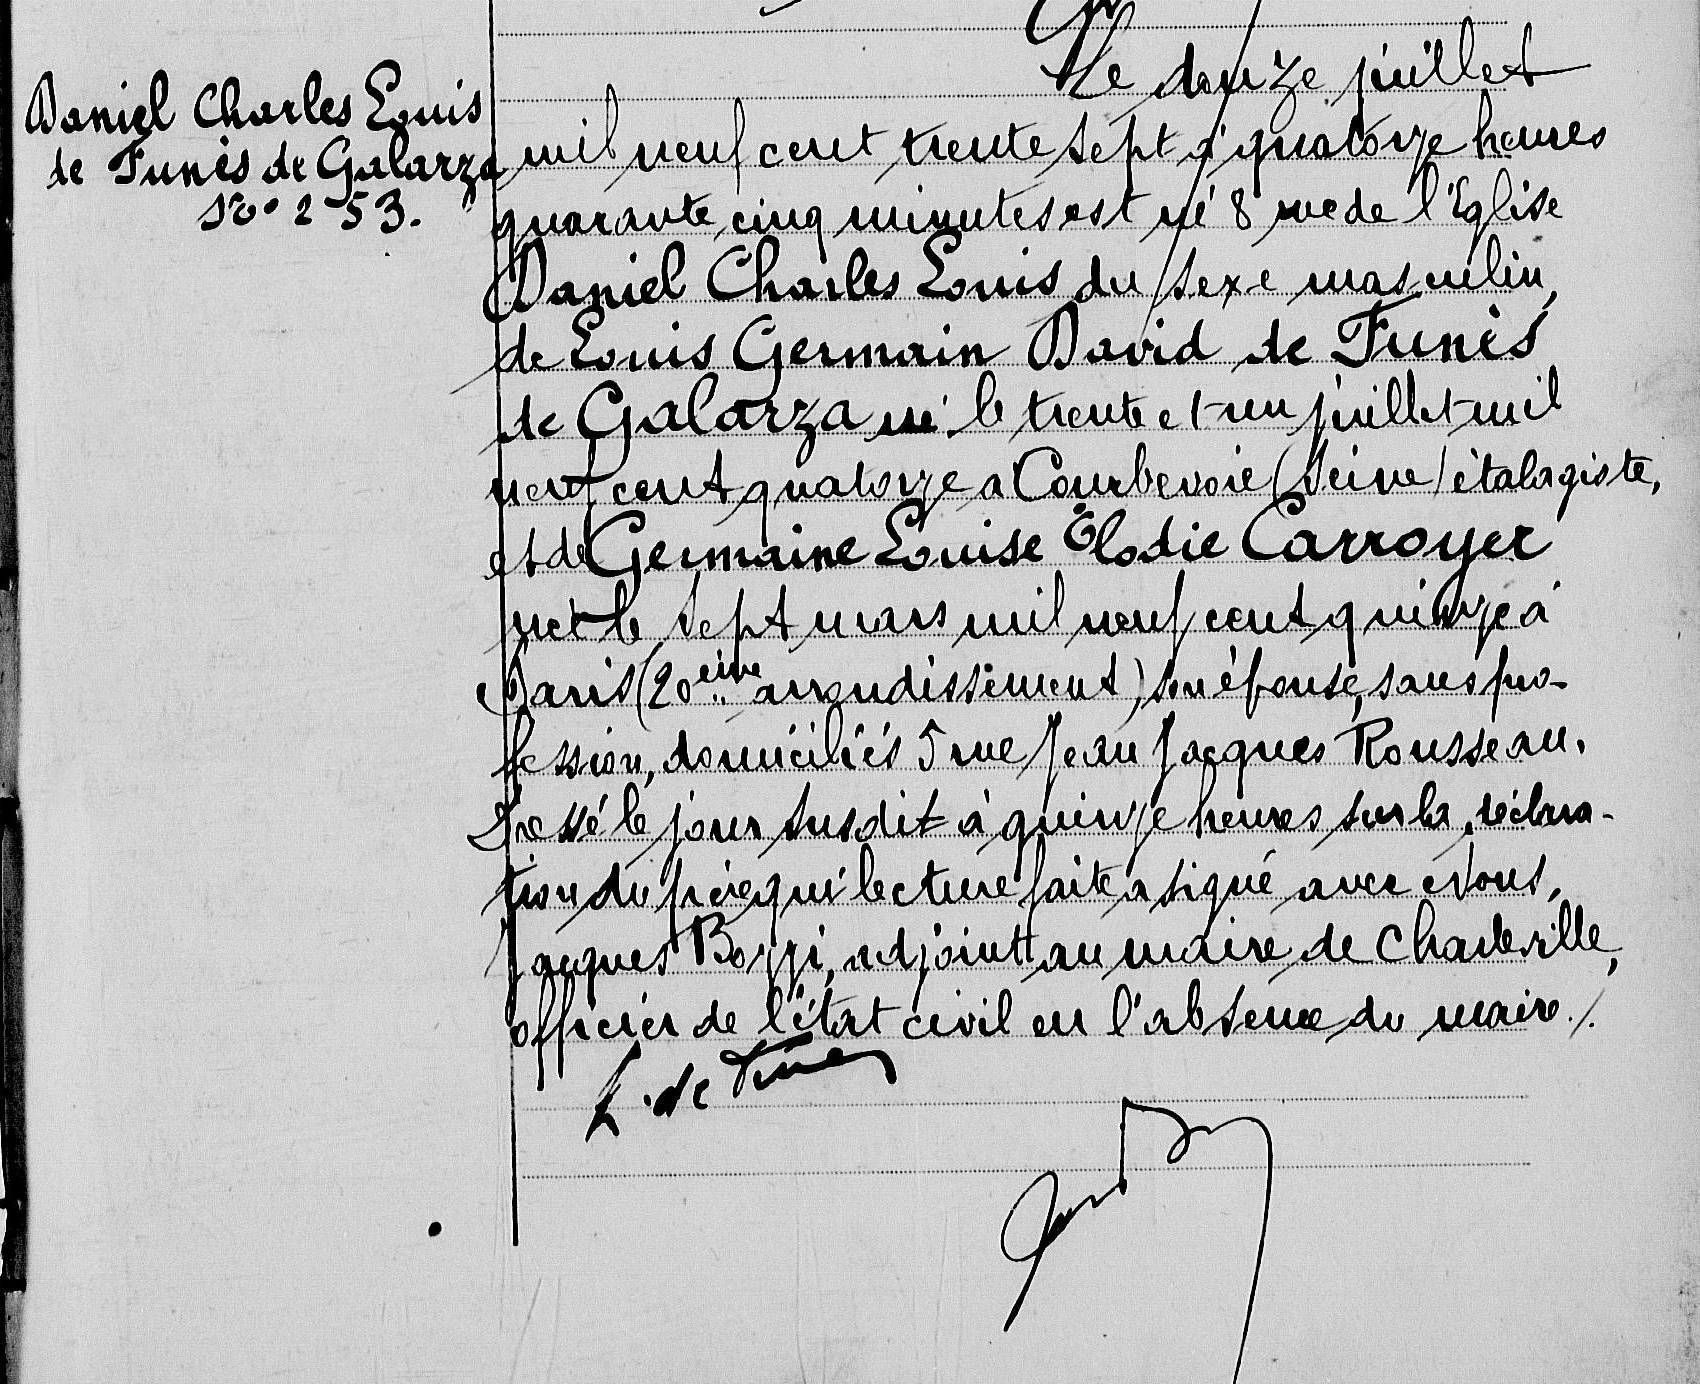 Daniel Charles Louis
de Funès de Galarza
No 253.
Le douze juillet
mil neuf cent trente sept à quatorze heures
quarante cinq minutes est né 8 rue de l'Eglise
Daniel Charles Louis du sexe masculin,
de Louis Germain David de Funès
de Galarza né le trente et un juillet mil
neuf cent quatorze à Courbevoie (Seine) étalagiste,
et de Germaine Louise Élodie Carroyer
née le sept mars mil neuf cent quinze à
Paris (20eme arrondissement) son épouse, sans pro-
fession, domiciliés 5 rue Jean Jacques Rousseau.
Dressé le jour susdit à quinze heures sur la déclara-
tion du père qui lecture faite a signé avec Nous,
Jacques Bozzi, adjoint au maire de Charleville,
officier de l'état civil en l'absence du maire./.
L. de Funes